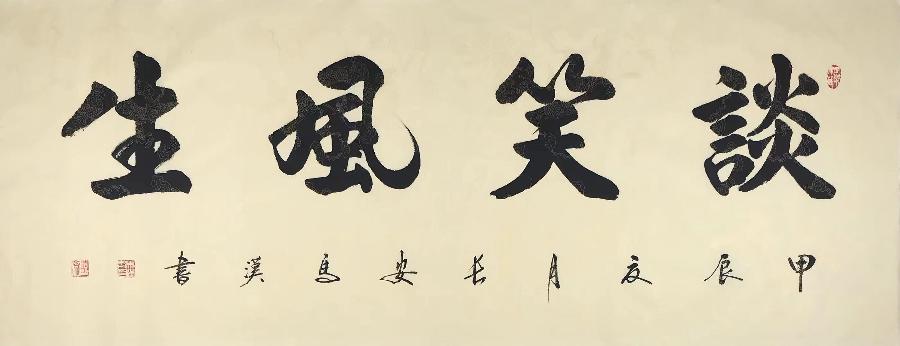 談笑風生
甲辰夏月長安馬漢書